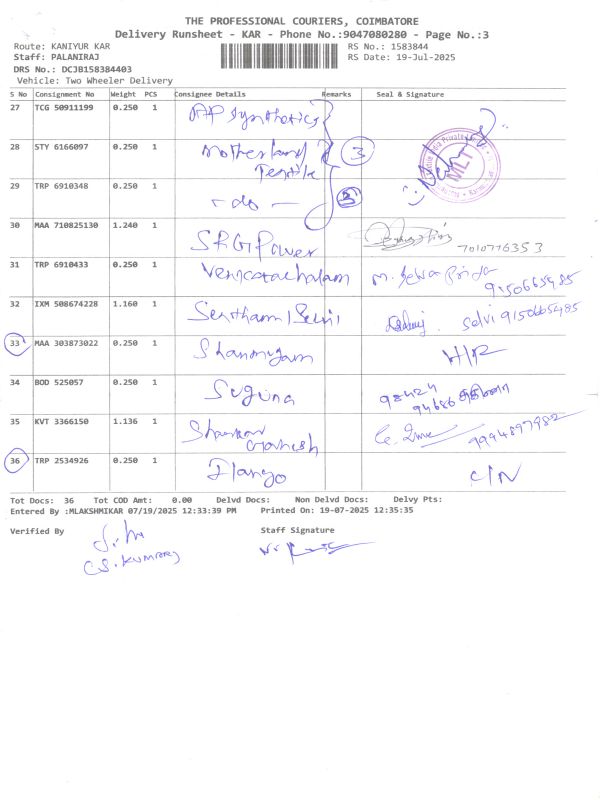 THE PROFESSIONAL COURIERS, COIMBATORE
Delivery Runsheet - KAR - Phone No.:9047080280 - Page No.:3
Route: KANIYUR KAR RS No.: 1583844
Staff: PALANIRAJ RS Date: 19-Jul-2025
DRS No.: DCJB158384403
Vehicle: Two Wheeler Delivery
S No Consignment No Weight PCS Consignee Details Remarks Seal & Signature
27 TCG 50911199 0.250 1 AP Synthetics
28 STY 6166097 0.250 1 Motherland Textile 3
MLT
29 TRP 6910348 0.250 1 - do -
30 MAA 710825130 1.240 1 SRG Power 7010776353
31 TRP 6910433 0.250 1 Venkatachalam 9150665485
32 IXM 508674228 1.160 1 Senthamil Selvi Selvi 9150665485
33 MAA 303873022 0.250 1 Shanmugam
34 BOD 525057 0.250 1 Sugina 98424
94686
35 KVT 3366150 1.136 1 Shankar Ganesh 9994897982
36 TRP 2534926 0.250 1 Ilango C/N
Tot Docs: 36 Tot COD Amt: 0.00 Delvd Docs: Non Delvd Docs: Delvy Pts:
Entered By :MLAKSHMIKAR 07/19/2025 12:33:39 PM Printed On: 19-07-2025 12:35:35
Verified By Staff Signature
(S. KUMAR)